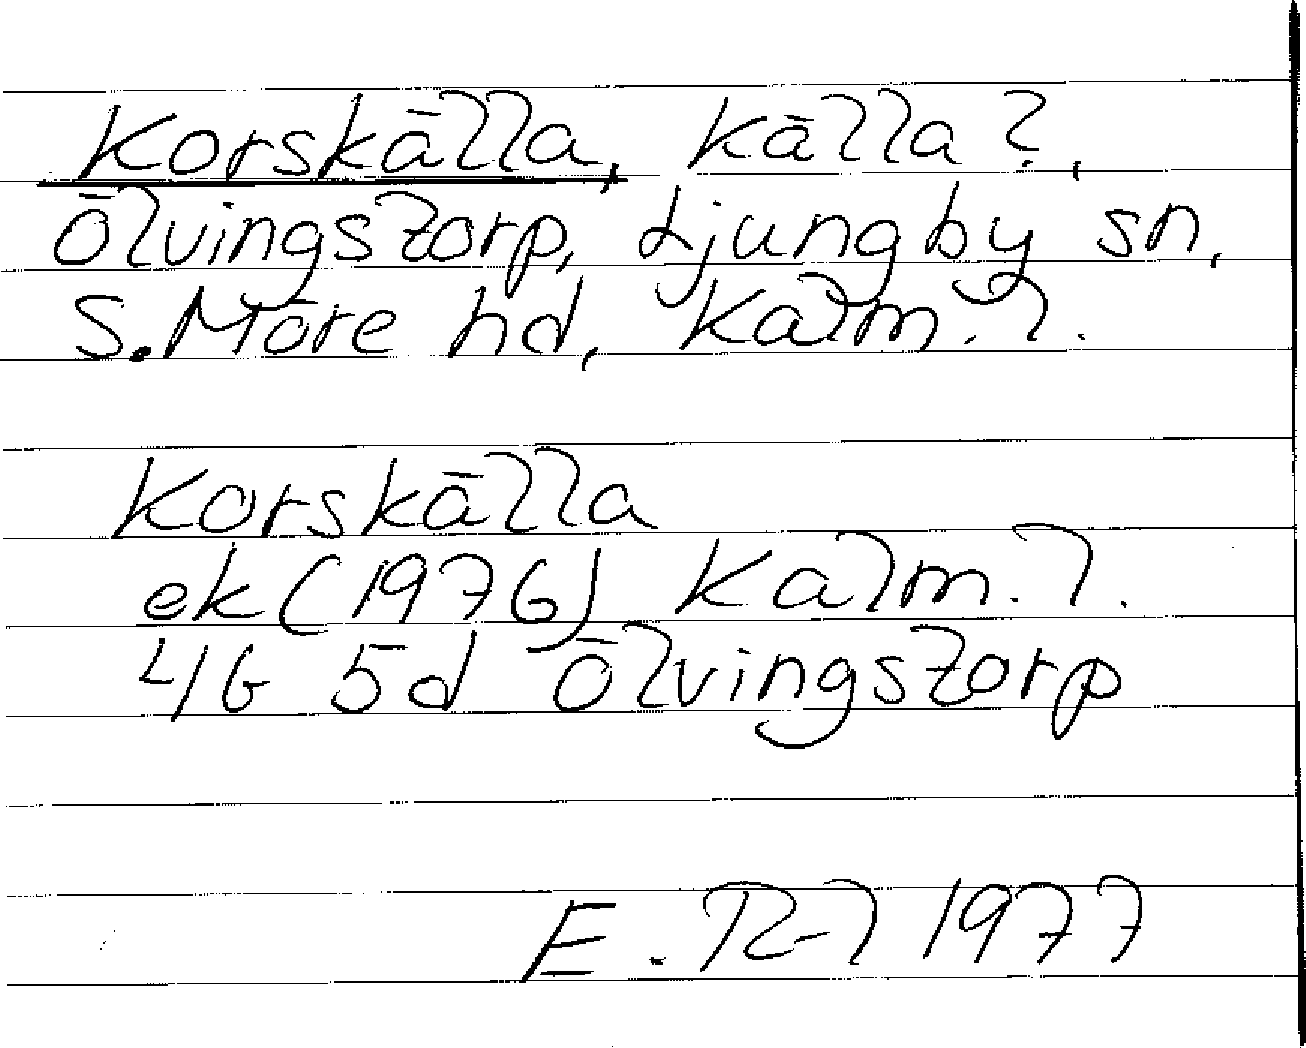 Korskälla, källa?,
Ölvingstorp, Ljungby sn,
S. Möre hd, Kalm. l.
Korskälla
ek (1976) Kalm. l.
4G 5d Ölvingstorp
E. R-l 1977